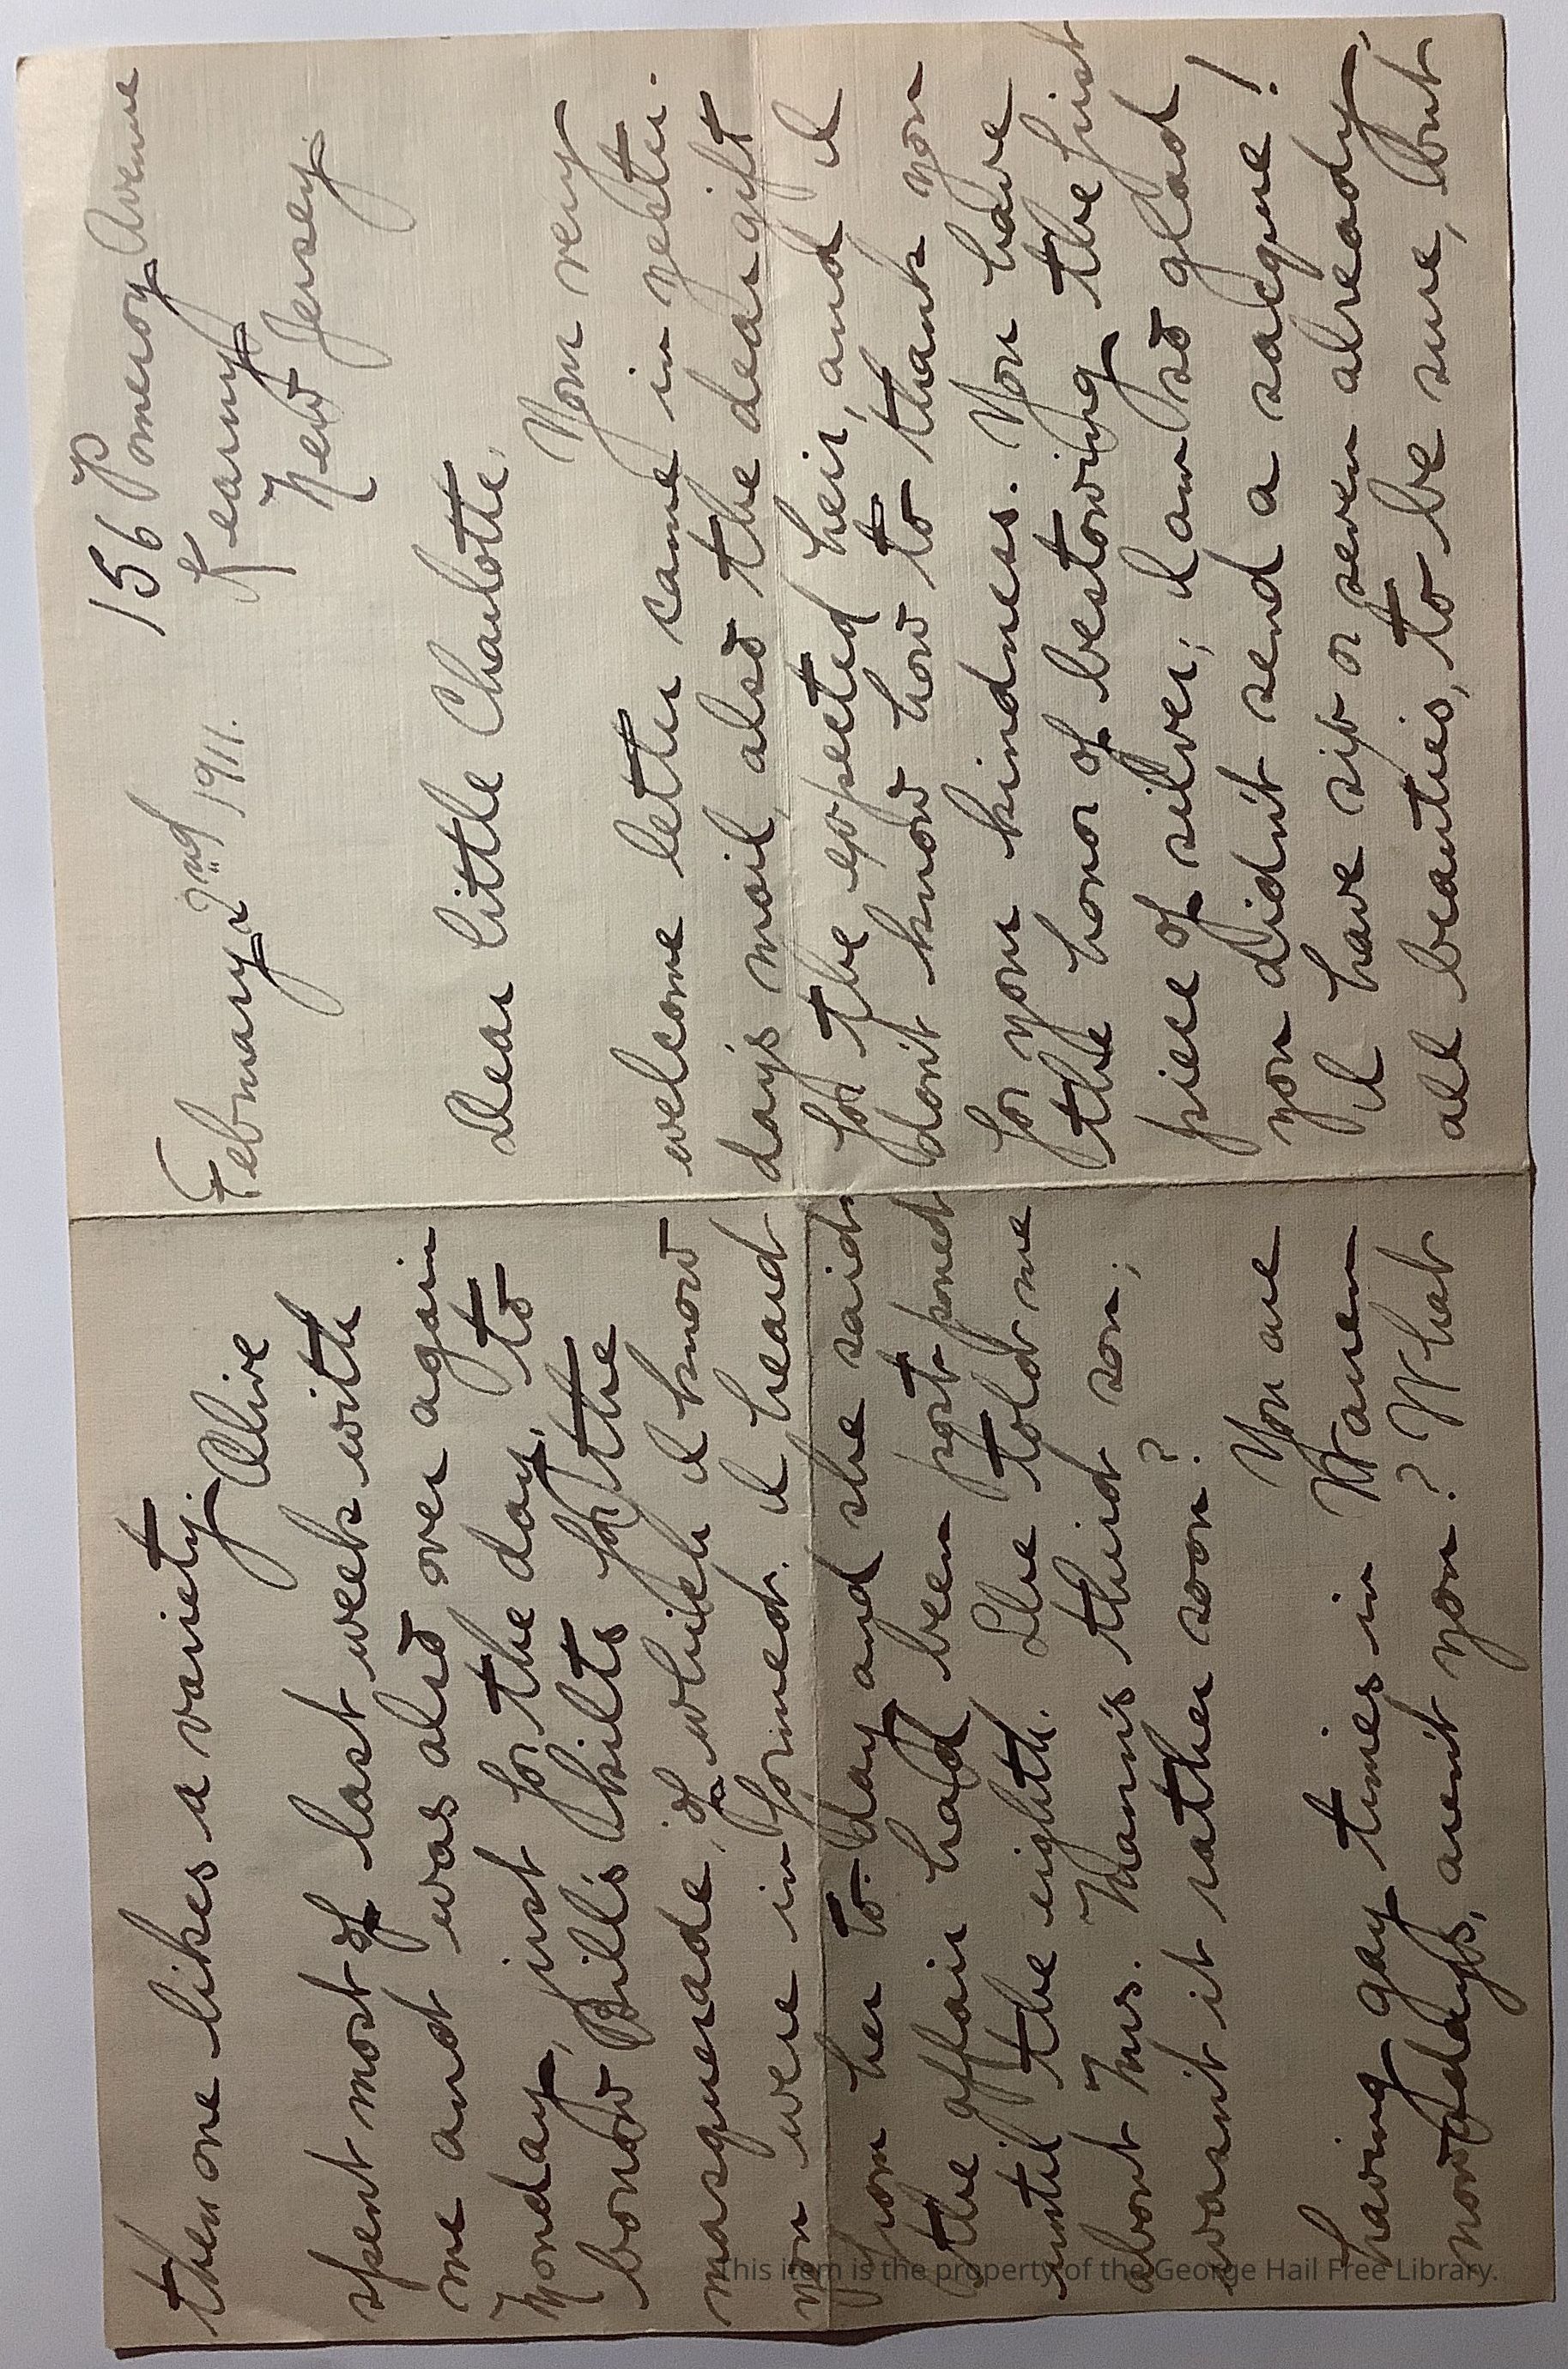 156 Pomeroy Avenue
Kearny
New Jersey
February 2nd 1911.
Dear little Charlotte,
Your very
welcome letter came in yester-
day's mail, also the dear gift
for the expected heir, and I
don't know how to thank you
for your kindness. You have
the honor of bestowing the first
piece of silver; I am so glad
you didn't send a sacque!
I have six or seven already,
all beauties, to be sure, but
then one likes a variety. Olive
spent most of last week with
me and was also over again
Monday, just for the day, to
borrow Bill's kilts for the
masquerade, of which I know
you were informed. I heard
from her to-day and she said
the affair had been postponed
until the eighth. She told me
about Mrs. Mann's third son;
wasn't it rather soon?
You are
having gay times in Warren
nowadays, aren't you? What
This item is the property of the George Hail Free Library.